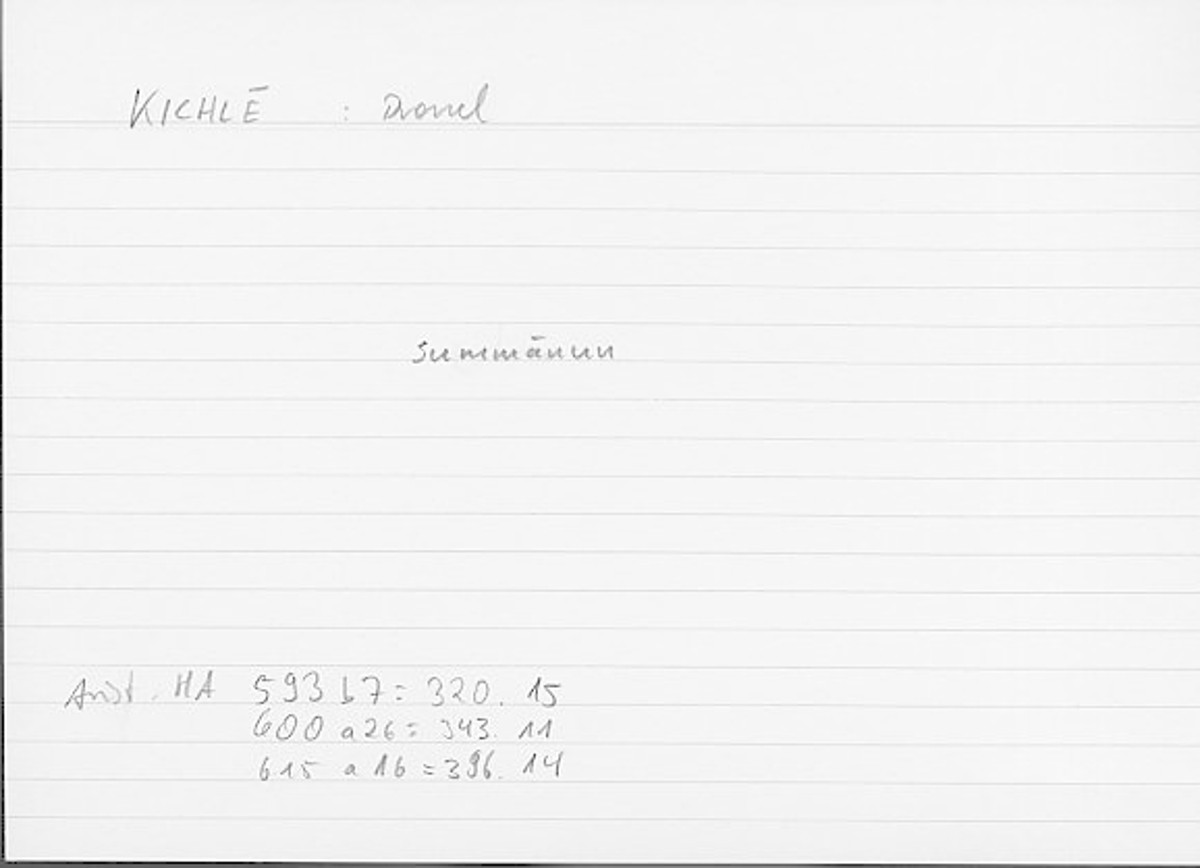 KICHLĒ : Drossel
summānun
Arist. HA 593 b7 = 320. 15
600 a 26 = 343. 11
615 a 16 = 396. 14